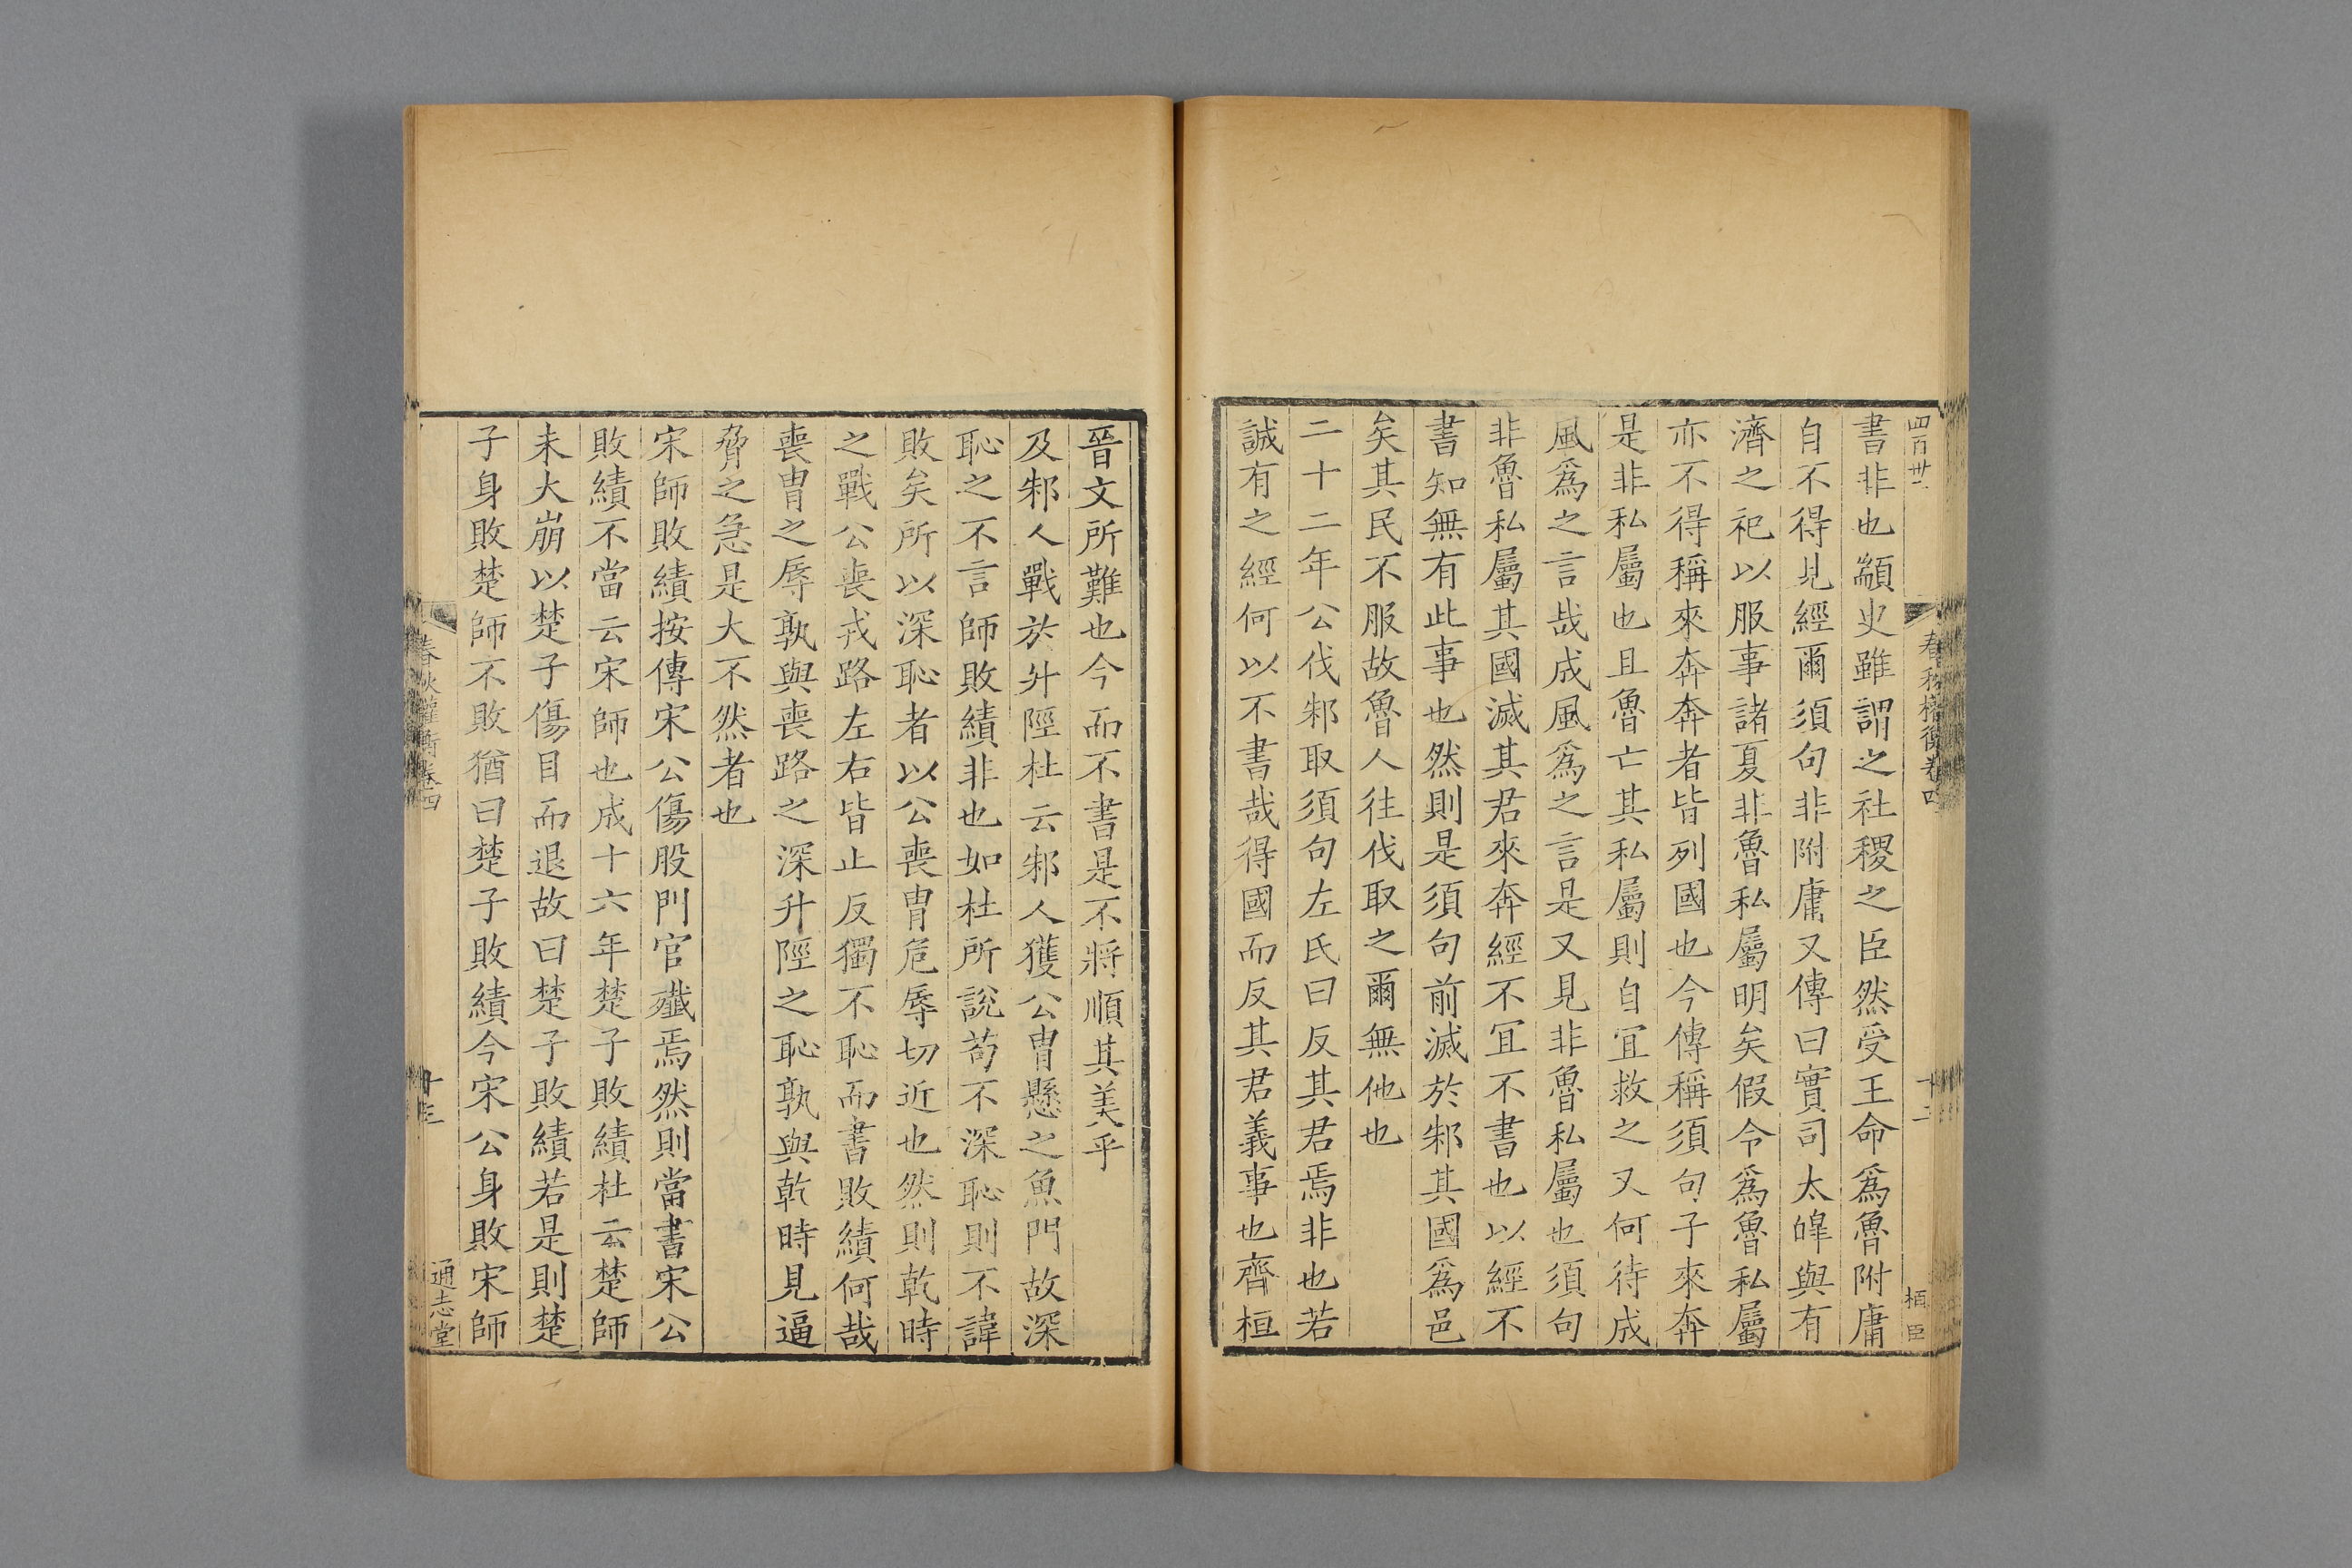 書非也顓臾雖謂之社稷之臣然受王命爲魯附庸
自不得見經爾須句非附庸又傳曰實司太皥與有
濟之祀以服事諸夏非魯私屬明矣假令爲魯私屬
亦不得稱來奔奔者皆列國也今傳稱須句子來奔
是非私屬也且魯亡其私屬則自冝救之又何待成
風爲之言哉成風爲之言是又見非魯私屬也須句
非魯私屬其國滅其君來奔經不冝不書也以經不
書知無有此事也然則是須句前滅於邾其國爲邑
矣其民不服故魯人往伐取之爾無他也
二十二年公伐邾取須句左氏曰反其君焉非也若
誠有之經何以不書哉得國而反其君義事也齊桓
晉文所難也今而不書是不將順其美乎
及邾人戰於升陘杜云邾人獲公胄懸之魚門故深
恥之不言師敗績非也如杜所說苟不深恥則不諱
敗矣所以深恥者以公喪胄危辱切近也然則乾時
之戰公喪戎路左右皆止反獨不恥而書敗績何哉
喪胄之辱孰與喪路之深升陘之恥孰與乾時見逼
脅之急是大不然者也
宋師敗績按傳宋公傷股門官殲焉然則當書宋公
敗績不當云宋師也成十六年楚子敗績杜云楚師
未大崩以楚子傷目而退故曰楚子敗績若是則楚
子身敗楚師不敗猶曰楚子敗績今宋公身敗宋師
春秋權衡卷四
十三
通志堂
四百卅
春秋權衡卷四
十二
栢臣